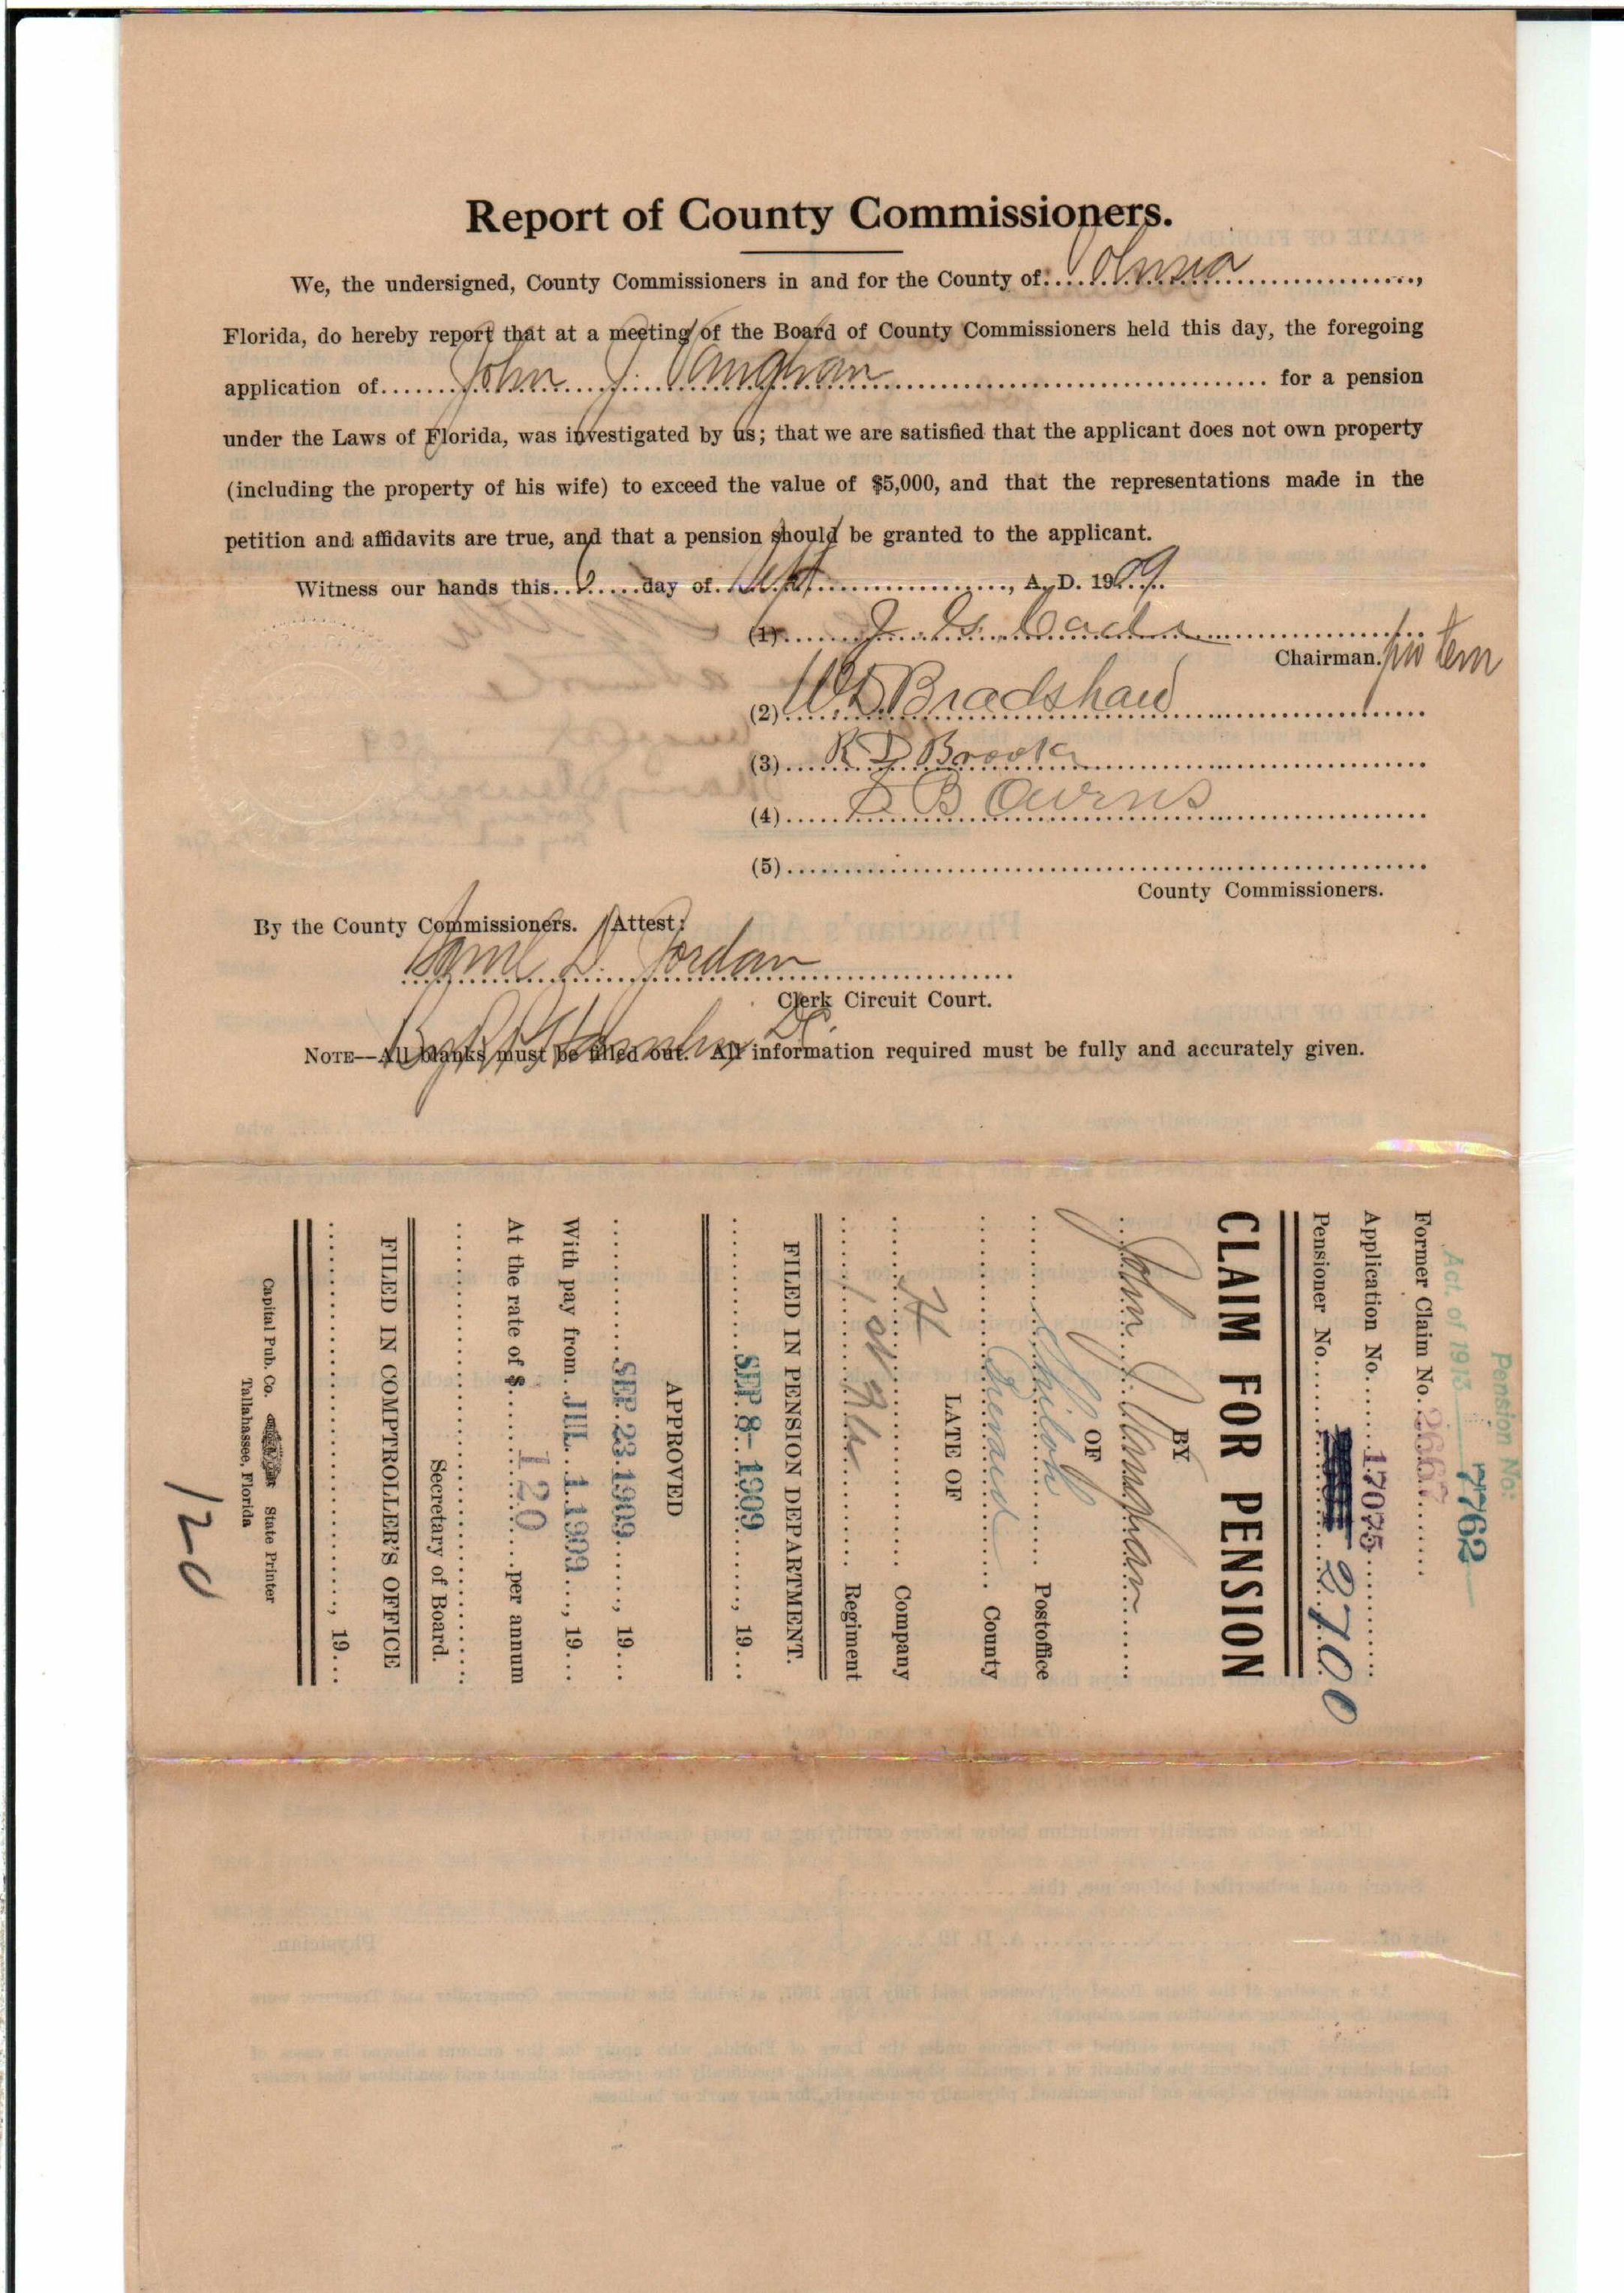 Report of County Commissioners.
We, the undersigned, County Commissioners in and for the County of: Volusia,
Florida, do hereby report that at a meeting of the Board of County Commissioners held this day, the foregoing
application of John J. Vaughan for a pension
under the Laws of Florida, was investigated by us; that we are satisfied that the applicant does not own property
(including the property of his wife) to exceed the value of $5,000, and that the representations made in the
petition and affidavits are true, and that a pension should be granted to the applicant.
Witness our hands this 6 day of Sept, A. D. 1909.
(1) J. G.
Chairman. pro tem
(2) W D Bradshaw
(3) R D Brooke
(4) B Owens
(5)
County Commissioners.
By the County Commissioners. Attest:
Saml D. Jordan
Clerk Circuit Court.
By D.C.
NOTE—All blanks must be filled out. All information required must be fully and accurately given.
Pension No:
Act. of 1913 7762
Former Claim No. 2667
Application No. 17075
Pensioner No. 2700
CLAIM FOR PENSION
BY
John J. Vaughan
OF
Shiloh Postoffice
Brevard County
LATE OF
H Company
1st Fla Regiment
FILED IN PENSION DEPARTMENT.
SEP 8-1909, 19
APPROVED
SEP 23 1909, 19
With pay from JUL 1 1909, 19
At the rate of $ 120 per annum
Secretary of Board.
FILED IN COMPTROLLER'S OFFICE
, 19
Capital Pub. Co. State Printer
Tallahassee, Florida
120